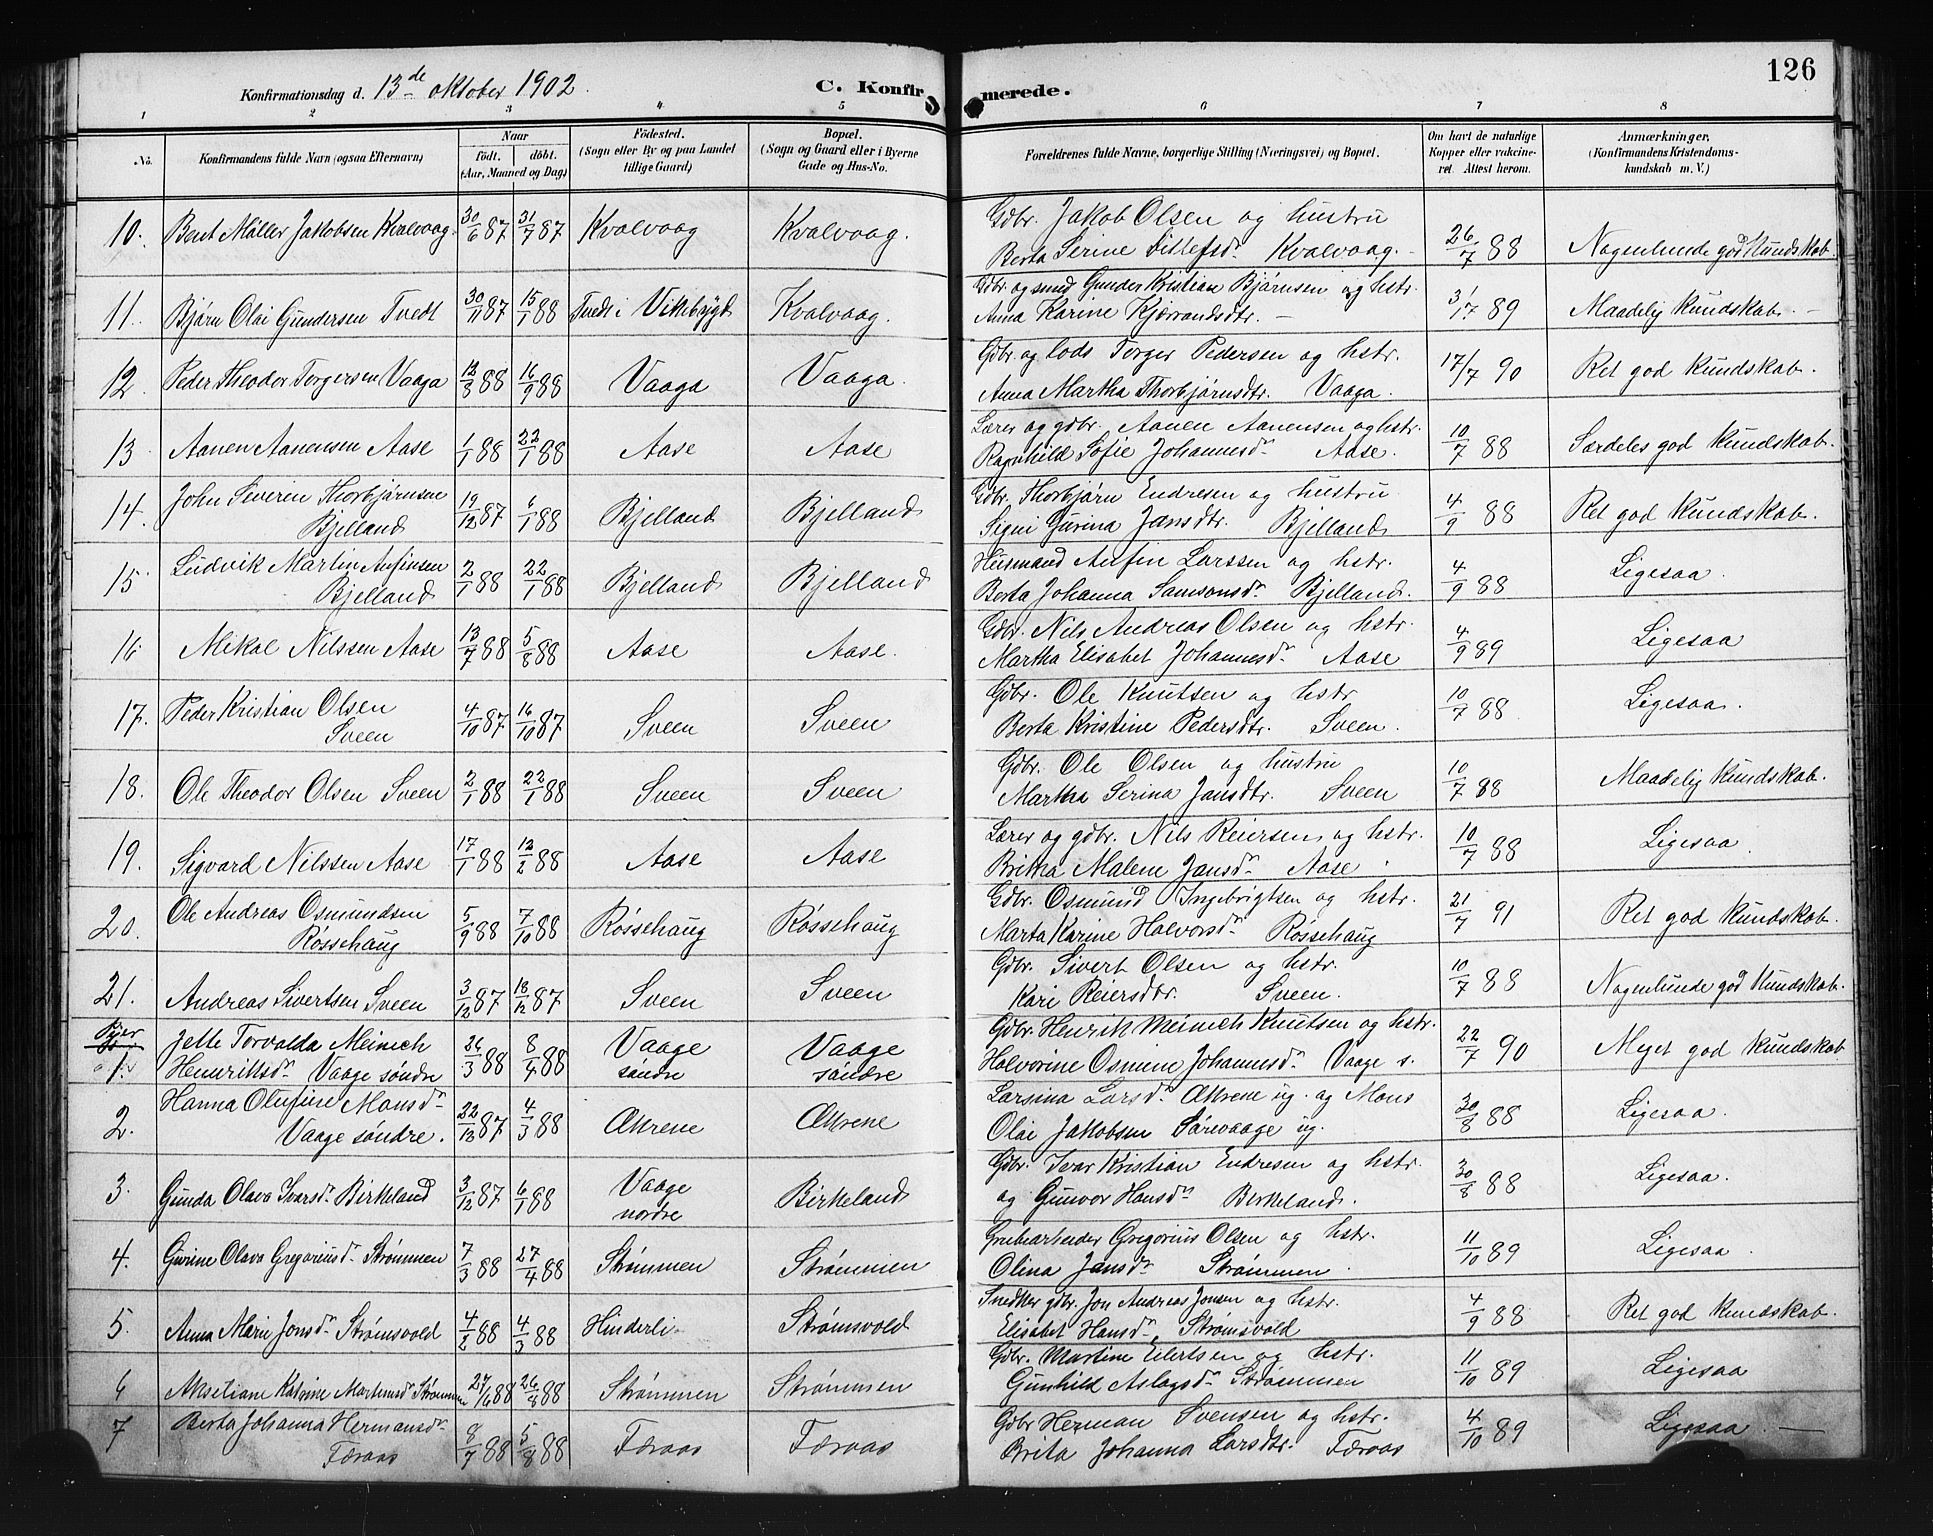 126
Konfirmationsdag d. 13de oktober 1902.
C. Konfirmerede.
1 2 3 4 5 6 7 8
No. Konfirmandens fulde Navn (ogsaa Efternavn) Naar født. døbt. (Aar, Maaned og Dag) Fødested. (Sogn eller By og paa Landet tillige Gaard) Bopæl. (Sogn og Gaard eller i Byerne Gade og Hus-No. Forældrenes fulde Navne, borgerlige Stilling (Næringsvei) og Bopæl. Om havt de naturlige Kopper eller vakcineret. Attest herom. Anmærkninger. (Konfirmandens Kristendomskundskab m. V.)
10. Bent Møller Jakobsen Kvalvaag. 30/6 87 31/7 87 Kvalvaag Kvalvaag. Gdbr. Jakob Olsen og hustru
Berta Serine Ditlefsdr. Kvalvaag. 26/7 88 Nogenlunde god Kundskab.
11. Bjørn Olai Gundersen Tvedt 30/11 87 15/1 88 Tvedt i Vikebygd Kvalvaag. Gdbr. og smed Gunder Kristian Bjørnsen og hstr.
Anna Karine Kjærrandsdtr. — 31/7 89 Maadelig Kundskab. —
12. Peder Theodor Torgersen Vaaga 12/8 88 16/9 88 Vaaga Vaaga. Gdbr. og lods Torger Pedersen og hstr.
Anna Martha Thorbjørnsdtr. Vaaga. 17/7 90 Ret god Kundskab.
13. Aanen Aanensen Aase 1/1 88 22/1 88 Aase Aase Lærer og gdbr. Aanen Aanensen og hstr.
Ragnhild Sofie Johannesdr. Aase. 10/7 88 Særdeles god Kundskab.
14. John Severin Thorbjørnsen
Bjelland 19/12 87 6/1 88 Bjelland Bjelland Gdbr. Thorbjørn Endresen og hustru
Signi Gurina Jansdtr. Bjelland 4/9 88 Ret god Kundskab.
15. Ludvik Martin Anfinsen
Bjelland 2/1 88 22/1 88 Bjelland Bjelland Husmand Anfin Larssen og hstr.
Berta Johanna Samsonsdr. Bjelland. 4/9 88 Ligesaa.
16. Mikal Nilssen Aase 13/7 88 5/8 88 Aase Aase. Gdbr. Nils Andreas Olsen og hstr.
Martha Elisabet Johannesdr. Aase 4/9 89 Ligesaa
17. Peder Kristian Olsen
Sveen 4/10 87 16/10 87 Sveen Sveen Gdbr. Ole Knutsen og hstr
Berta Kristine Pedersdtr. Sveen. 10/7 88 Ligesaa.
18. Ole Theodor Olsen Sveen 2/1 88 22/1 88 Sveen Sveen Gdbr. Ole Olsen og hustru
Martha Serina Jansdtr. Sveen 10/7 88 Maadelig Kundskab.
19. Sigvard Nilssen Aase 17/1 88 12/2 88 Aase Aase Lærer og gdbr. Nils Reiersen og hstr.
Britha Malene Jansdr. Aase 10/7 88 Ligesaa.
20. Ole Andreas Osmundsen
Røssehaug 5/9 88 7/10 88 Røssehaug Røssehaug Gdbr. Osmund Ingebrigtsen og hstr.
Marta Karine Halvorsdr. Røssehaug 21/7 91 Ret god Kundskab.
21. Andreas Sivertsen Sveen 3/12 87 18/12 87 Sveen Sveen Gdbr. Sivert Olsen og hstr.
Kari Reiersdtr. Sveen. 10/7 88 Nogenlunde god Kundskab.
Piger
1. Jette Torvalda Meinich
Henriksdr. Vaage søndre 26/3 88 8/4 88 Vaage søndre Vaage søndre Gdbr. Henrik Meinich Knutsen og hstr.
Halvorine Osmine Johannesdr. Vaage s. 22/7 90 Meget god Kundskab
2. Hanna Olufine Monsdr.
Vaage søndre. 22/12 87 4/3 88 Økrene Økrene Larsina Larsdr. Økrene ug. og Mons
Olai Jakobsen Sørevaage ug. 30/8 88 Ligesaa.
3. Gunda Olava Ivarsdr. Birkeland 3/12 87 6/1 88 Vaage nordre Birkeland Gdbr. Ivar Kristian Endresen og hstr.
og Gunvor Hansdr. Berkeland. 30/8 88 Ligesaa.
4. Gurine Olava Gregoriusdr. Strømmen 7/3 88 27/4 88 Strømmen Strømmen Grubearbeider Gregorius Olsen og hstr.
Olina Jansdr. Strømmen. 11/10 89 Ligesaa.
5. Anna Marie Jonsdr. Strømsvold 4/2 88 4/3 88 Hinderli Strømsvold Snedker gdbr. Jon Andreas Jonsen og hstr.
Elisabet Hansdr. Strømsvold 4/9 88 Ret god Kundskab
6 Akseliane Katrine Martinusdr. Strømmen 24/6 88 26/8 88 Strømmen Strømmen Gdbr. Martine Eilertsen og hstr.
Gunhild Aslagsdr. Strømmen 11/10 89 Ligesaa
7 Berta Johanna Hermansdr.
Færaas 8/7 88 5/8 88 Færaas Færaas Gdbr Herman Svensen og hstr.
Brita Johanna Larsdtr. Færaas 4/10 89 Ligesaa. —